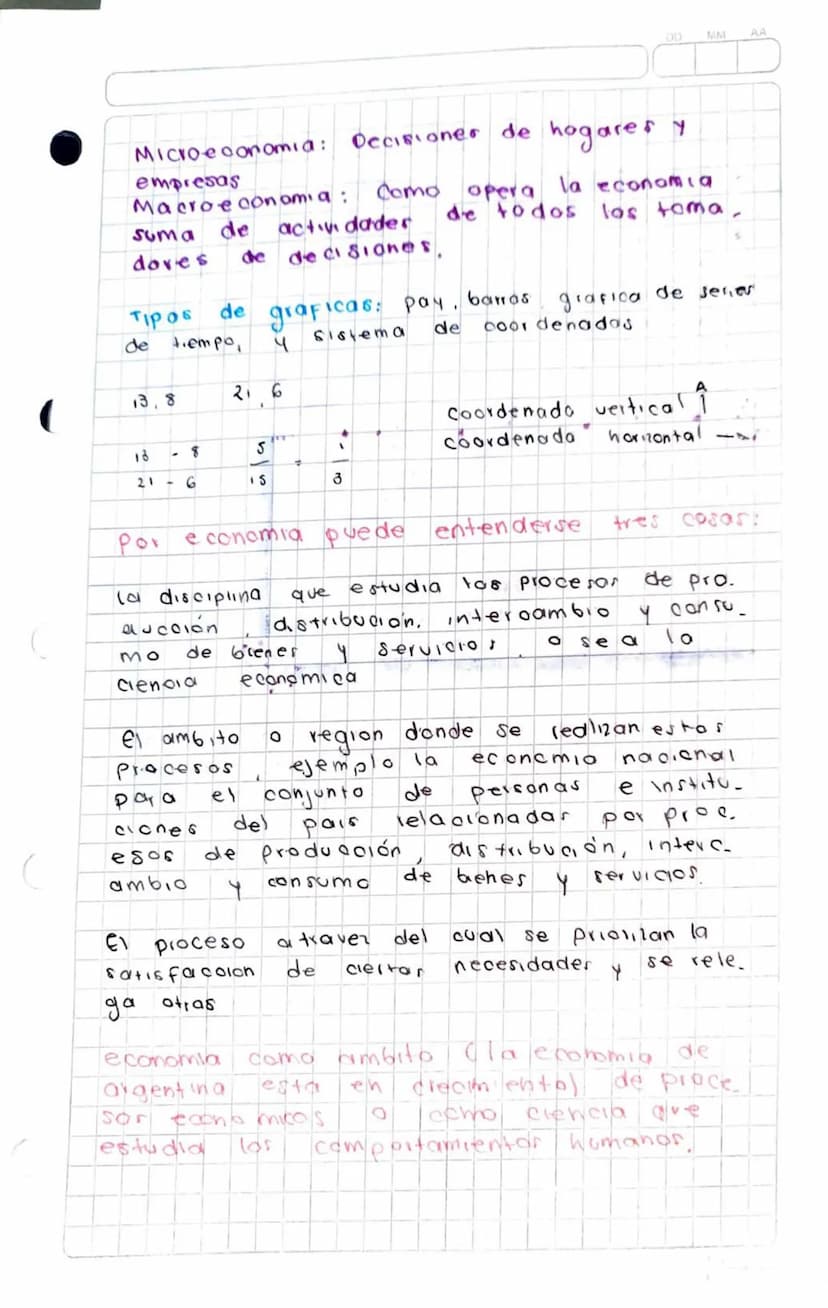 DD MM AA
Microeconomia: Decisiones de hogares y
empresas
Macroeconomia: Como opera la economia
suma de actividades de todos los toma-
dores de decisiones.
Tipos de graficas: pay, barras, grafica de series
de tiempo, y sistema de coordenadas
13,8 21,6
coordenada vertical ↑
coordenada horizontal →
13 - 8 5 = 1
21 - 6 15 3
Por economia puede entenderse tres cosas:
La disciplina que estudia los procesos de pro-
ducción, distribución, intercambio y consu-
mo de bienes y servicios, o sea la
ciencia económica
El ambito o region donde se realizan estos
procesos, ejemplo la economia nacional
para el conjunto de personas e institu-
ciones del pais relacionadas por proc-
esos de producción, distribución, interc-
ambio y consumo de bienes y servicios.
El proceso atraves del cual se priorizan la
satisfaccion de ciertas necesidades y se rele-
ga otras
economia como ambito (la economia de
argentina esta en crecimiento) de proce
sos economicos o como ciencia que
estudia los comportamientos humanos.